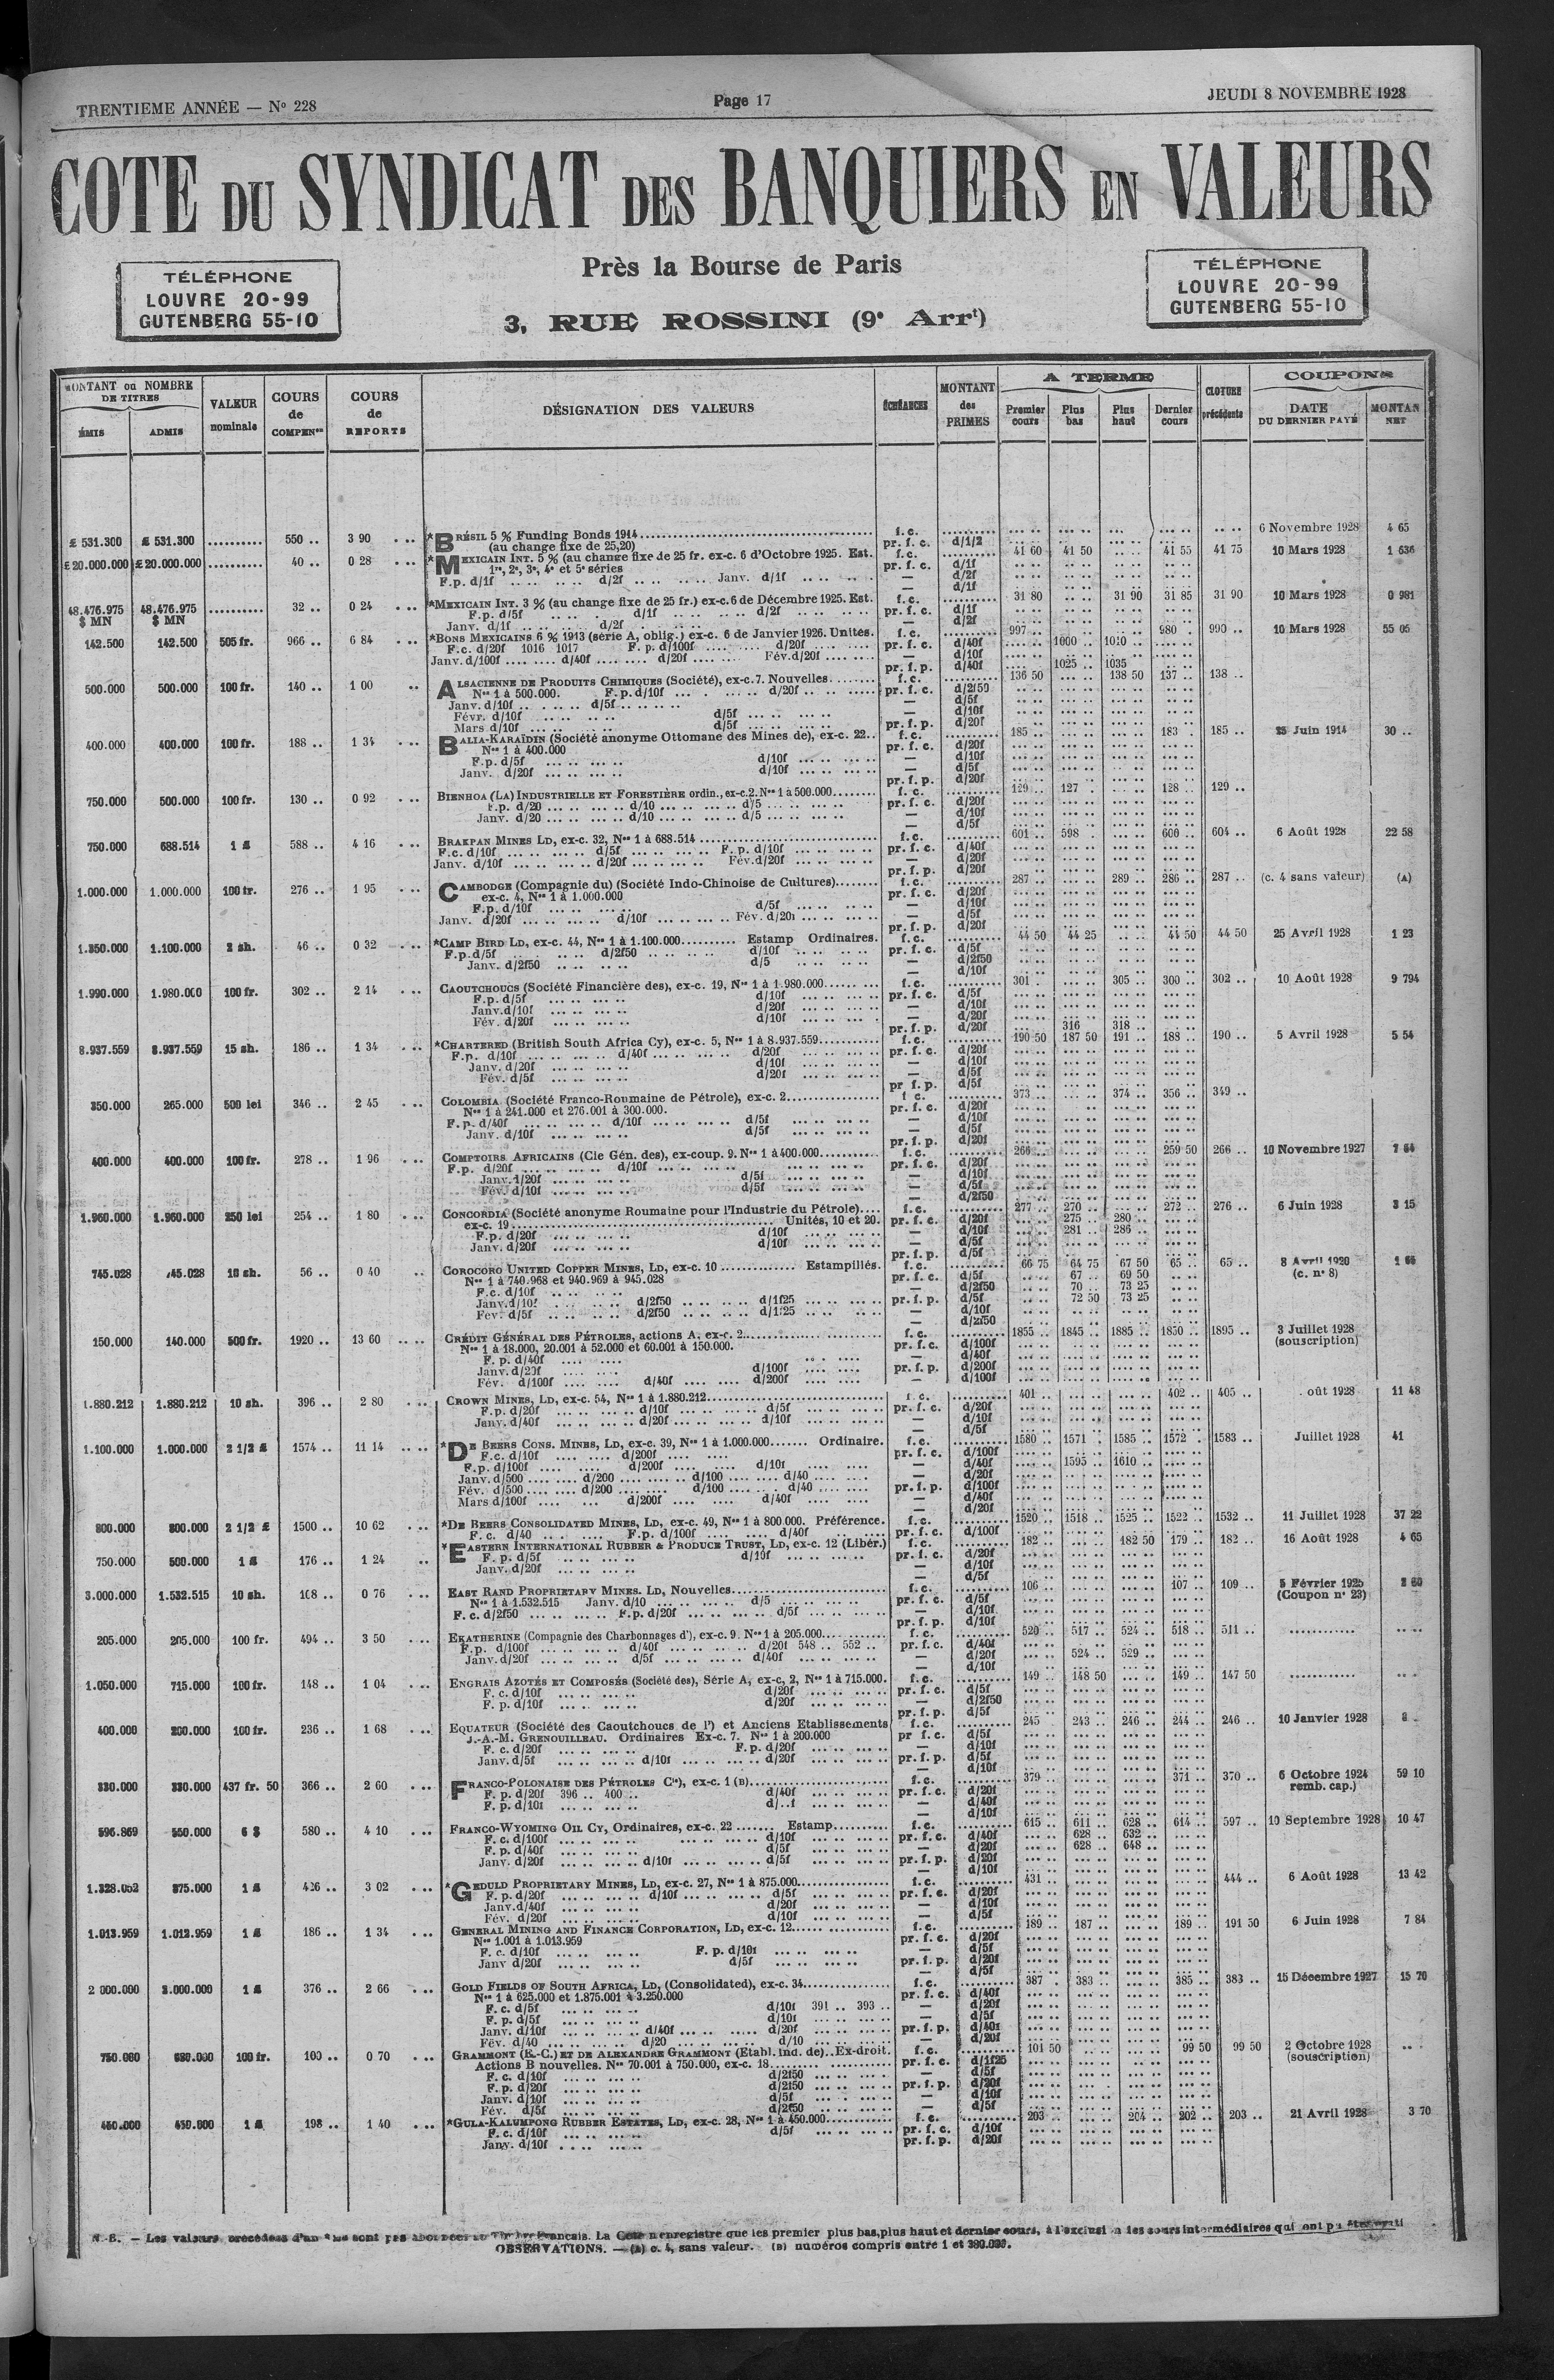 TRENTIEME ANNÉE — N° 228
Page 17
JEUDI 8 NOVEMBRE 1928
COTE DU SYNDICAT DES BANQUIERS EN VALEURS
TÉLÉPHONE
LOUVRE 20-99
GUTENBERG 55-10
Près la Bourse de Paris
3, RUE ROSSINI (9e Arrt)
TÉLÉPHONE
LOUVRE 20-99
GUTENBERG 55-10
MONTANT ou NOMBRE DE TITRES
ÉMIS ADMIS
VALEUR nominale
COURS de COMPENon
COURS de REPORTS
DÉSIGNATION DES VALEURS
ÉCHÉANCES
MONTANT des PRIMES
A TERME
Premier cours Plus bas Plus haut Dernier cours
CLOTURE précédente
COUPONS
DATE DU DERNIER PAYÉ MONTAN NET
£ 531.300 £ 531.300 .......... 550 .. 3 90 *BRÉSIL 5 % Funding Bonds 1914 f. c. 6 Novembre 1928 4 65
(au change fixe de 25,20) pr. f. c. d/1/2
£ 20.000.000 £ 20.000.000 .......... 40 .. 0 28 *MEXICAIN INT. 5 % (au change fixe de 25 fr. ex-c. 6 d'Octobre 1925. Est. f. c. 41 60 41 50 41 55 41 75 10 Mars 1928 1 636
1re, 2e, 3e, 4e et 5e séries pr. f. c. d/1f
F.p. d/1f d/2f Janv. d/1f — d/2f
48.476.975 $ MN 48.476.975 $ MN .......... 32 .. 0 24 *MEXICAIN INT. 3 % (au change fixe de 25 fr.) ex-c. 6 de Décembre 1925. Est. f. c. 31 80 31 90 31 85 31 90 10 Mars 1928 0 981
F.p. d/5f d/1f d/2f pr. f. c. d/1f
Janv. d/1f d/2f — d/2f
142.500 142.500 505 fr. 966 .. 6 84 *BONS MEXICAINS 6 % 1913 (série A, oblig.) ex-c. 6 de Janvier 1926. Unités. f. c. 997 .. 980 . 990 .. 10 Mars 1928 55 05
F.c. d/20f 1016 1017 F. p. d/100f d/20f pr. f. c. d/40f 1000 .. 1010 ..
Janv. d/100f d/40f d/20f Fév. d/20f — d/10f
pr. f. p. d/40f 1025 .. 1035
500.000 500.000 100 fr. 140 .. 1 00 ALSACIENNE DE PRODUITS CHIMIQUES (Société), ex-c. 7. Nouvelles f. c. 136 50 138 50 137 .. 138 ..
Nos 1 à 500.000. F.p. d/10f d/20f pr. f. c. d/2f50
Janv. d/10f d/5f — d/5f
Févr. d/10f d/5f — d/10f
Mars d/10f d/5f pr. f. p. d/20f
400.000 400.000 100 fr. 188 .. 1 34 BALIA-KARAÏDIN (Société anonyme Ottomane des Mines de), ex-c. 22 f. c. 185 .. 183 . 185 .. 25 Juin 1914 30 ..
Nos 1 à 400.000 pr. f. c. d/20f
F.p. d/5f d/10f — d/10f
Janv. d/20f d/10f — d/5f
pr. f. p. d/20f
750.000 500.000 100 fr. 130 .. 0 92 BIENHOA (LA) INDUSTRIELLE ET FORESTIÈRE ordin., ex-c. 2. Nos 1 à 500.000 f. c. 129 .. 127 . 128 .. 129 ..
F.p. d/20 d/10 d/5 pr. f. c. d/20f
Janv. d/20 d/10 d/5 — d/10f
— d/5f
750.000 688.514 1 £ 588 .. 4 16 BRAKPAN MINES LD, ex-c. 32, Nos 1 à 688.514 f. c. 601 .. 598 . 600 .. 604 .. 6 Août 1928 22 58
F.c. d/10f d/5f F. p. d/10f pr. f. c. d/40f
Janv. d/10f d/20f Fév. d/20f — d/20f
pr. f. p. d/20f
1.000.000 1.000.000 100 fr. 276 .. 1 95 CAMBODGE (Compagnie du) (Société Indo-Chinoise de Cultures) f. c. 287 .. 289 .. 286 .. 287 .. (c. 4 sans valeur) (A)
ex-c. 4, Nos 1 à 1.000.000 pr. f. c. d/20f
F.p. d/10f d/5f — d/10f
Janv. d/20f d/10f Fév. d/20f — d/5f
pr. f. p. d/20f
1.350.000 1.100.000 2 sh. 46 .. 0 32 *CAMP BIRD LD, ex-c. 44, Nos 1 à 1.100.000 Estamp Ordinaires. f. c. 44 50 44 25 44 50 44 50 25 Avril 1928 1 23
F.p. d/5f d/2f50 d/10f pr. f. c. d/5f
Janv. d/2f50 d/5 — d/2f50
— d/10f
1.990.000 1.980.000 100 fr. 302 .. 2 14 CAOUTCHOUCS (Société Financière des), ex-c. 19, Nos 1 à 1.980.000 f. c. 301 . 305 .. 300 .. 302 .. 10 Août 1928 9 794
F.p. d/5f d/10f pr. f. c. d/5f
Janv. d/10f d/20f — d/10f
Fév. d/20f d/10f — d/20f
pr. f. p. d/20f 316 318 ..
8.937.559 8.937.559 15 sh. 186 .. 1 34 *CHARTERED (British South Africa Cy), ex-c. 5, Nos 1 à 8.937.559 f. c. 190 50 187 50 191 .. 188 .. 190 .. 5 Avril 1928 5 54
F.p. d/10f d/40f d/20f pr. f. c. d/20f
Janv. d/20f d/10f — d/10f
Fév. d/5f d/20f — d/5f
pr f. p. d/5f
350.000 265.000 500 lei 346 .. 2 45 COLOMBIA (Société Franco-Roumaine de Pétrole), ex-c. 2 f. c. 373 .. 374 .. 356 .. 349 ..
Nos 1 à 241.000 et 276.001 à 300.000. pr. f. c. d/20f
F. p. d/40f d/10f d/5f — d/10f
Janv. d/10f d/5f — d/5f
pr. f. p. d/20f
400.000 400.000 100 fr. 278 .. 1 96 COMPTOIRS AFRICAINS (Cie Gén. des), ex-coup. 9. Nos 1 à 400.000 f. c. 266 .. 259 50 266 .. 10 Novembre 1927
F.p. d/20f d/10f pr. f. c. d/20f
Janv. d/20f d/5f — d/10f
Fév. d/10f d/5f — d/5f
— d/2f50
1.960.000 1.960.000 250 lei 254 .. 1 80 CONCORDIA (Société anonyme Roumaine pour l'Industrie du Pétrole) f. c. 277 .. 270 .. 272 .. 276 .. 6 Juin 1928 3 15
ex-c. 19 Unités, 10 et 20. pr. f. c. d/20f 275 .. 280 ..
F.p. d/20f d/10f — d/10f 281 .. 286 ..
Janv. d/20f d/10f — d/5f
pr. f. p. d/5f
745.028 745.028 10 sh. 56 .. 0 40 COROCORO UNITED COPPER MINES, LD, ex-c. 10 Estampillés. f. c. 66 75 64 75 67 50 65 .. 65 .. 8 Avril 1920
Nos 1 à 740.968 et 940.969 à 945.028 pr. f. c. d/5f 67 .. 69 50 (c. n° 8)
F.c. d/10f — d/2f50 70 .. 73 25
Janv. d/10f d/2f50 d/1f25 pr. f. p. d/5f 72 50 73 25
Fév. d/5f d/2f50 d/1f25 — d/10f
— d/2f50
150.000 140.000 500 fr. 1920 .. 13 60 CRÉDIT GÉNÉRAL DES PÉTROLES, actions A. ex-c. 2 f. c. 1855 .. 1845 .. 1885 .. 1850 .. 1895 .. 3 Juillet 1928
Nos 1 à 18.000, 20.001 à 52.000 et 60.001 à 150.000. pr. f. c. d/100f (souscription)
F. p. d/40f — d/40f
Janv. d/20f d/100f pr. f. p. d/200f
Fév. d/100f d/40f d/200f — d/100f
1.880.212 1.880.212 10 sh. 396 .. 2 80 CROWN MINES, LD, ex-c. 54, Nos 1 à 1.880.212 f. c. 401 .. 402 .. 405 .. oût 1928 11 48
F.p. d/20f d/10f d/5f pr. f. c. d/20f
Janv. d/40f d/20f d/10f — d/10f
— d/5f
1.100.000 1.000.000 2 1/2 £ 1574 .. 11 14 *DE BEERS CONS. MINES, LD, ex-c. 39, Nos 1 à 1.000.000 Ordinaire. f. c. 1580 .. 1571 . 1585 .. 1572 . 1583 .. Juillet 1928 41
F.c. d/10f d/200f pr. f. c. d/100f
F.p. d/100f d/200f d/10f — d/40f 1595 .. 1610 ..
Janv. d/500 d/200 d/100 d/40 — d/20f
Fév. d/500 d/200 d/100 d/40 pr. f. p. d/100f
Mars d/100f d/200f d/40f — d/40f
— d/20f
800.000 800.000 2 1/2 £ 1500 .. 10 62 *DE BEERS CONSOLIDATED MINES, LD, ex-c. 49, Nos 1 à 800.000. Préférence. f. c. 1520 .. 1518 .. 1525 .. 1522 .. 1532 .. 11 Juillet 1928 37 22
F. c. d/40 F.p. d/100f d/40f pr. f. c. d/100f
750.000 500.000 1 £ 176 .. 1 24 *EASTERN INTERNATIONAL RUBBER & PRODUCE TRUST, LD, ex-c. 12 (Libér.) f. c. 182 .. 182 50 179 .. 182 .. 16 Août 1928 4 65
F. p. d/5f d/10f pr. f. c. d/20f
Janv. d/20f — d/10f
— d/5f
3.000.000 1.532.515 10 sh. 108 .. 0 76 EAST RAND PROPRIETARY MINES. LD, Nouvelles f. c. 106 .. 107 .. 109 .. 5 Février 1925
Nos 1 à 1.532.515 Janv. d/10 d/5 pr. f. c. d/5f (Coupon n° 23)
F. c. d/2f50 F.p. d/20f d/5f — d/10f
pr. f. p. d/10f
205.000 205.000 100 fr. 494 .. 3 50 EKATHERINE (Compagnie des Charbonnages d'), ex-c. 9. Nos 1 à 205.000 f. c. 520 .. 517 .. 524 .. 518 .. 511 ..
F.p. d/100f d/40f d/20f 548 .. 552 .. pr. f. c. d/40f
Janv. d/20f d/5f d/40f — d/20f 524 .. 529 ..
— d/10f
1.050.000 715.000 100 fr. 148 .. 1 04 ENGRAIS AZOTÉS ET COMPOSÉS (Société des), Série A, ex-c, 2, Nos 1 à 715.000. f. c. 149 .. 148 50 149 .. 147 50
F. c. d/10f d/20f pr. f. c. d/5f
F. p. d/10f d/20f — d/2f50
pr. f. p. d/5f
400.000 200.000 100 fr. 236 .. 1 68 EQUATEUR (Société des Caoutchoucs de l') et Anciens Etablissements f. c. 245 . 243 .. 246 .. 244 .. 246 .. 10 Janvier 1928
J.-A.-M. GRENOUILLEAU. Ordinaires Ex-c. 7. Nos 1 à 200.000 pr f. c. d/5f
F. c. d/20f F. p. d/20f — d/10f
Janv. d/5f d/10f d/20f pr. f. p. d/5f
— d/10f
330.000 330.000 437 fr. 50 366 .. 2 60 FRANCO-POLONAISE DES PÉTROLES Cie), ex-c. 1 (B) f. c. 379 .. 371 .. 370 .. 6 Octobre 1924 59 10
F. p. d/20f 396 .. 400 .. d/40f pr. f. c. d/20f remb. cap.)
F. p. d/10f d/..f — d/40f
— d/10f
596.869 550.000 6 $ 580 .. 4 10 FRANCO-WYOMING OIL CY, Ordinaires, ex-c. 22 Estamp f. c. 615 .. 611 .. 628 .. 614 .. 597 .. 10 Septembre 1928 10 47
F. c. d/100f d/10f pr. f. c. d/40f 628 .. 632 ..
F. p. d/40f d/5f — d/20f 628 .. 648 ..
Janv. d/20f d/10f d/5f pr. f. p. d/20f
— d/10f
1.328.052 875.000 1 £ 426 .. 3 02 *GEDULD PROPRIETARY MINES, LD, ex-c. 27, Nos 1 à 875.000 f. c. 431 .. 444 .. 6 Août 1928 13 42
F. p. d/20f d/10f d/5f pr. f. c. d/20f
Janv. d/40f d/20f — d/10f
Fév. d/20f d/10f — d/5f
1.013.959 1.012.959 1 £ 186 .. 1 34 GENERAL MINING AND FINANCE CORPORATION, LD, ex-c. 12 f. c. 189 .. 187 .. 189 .. 191 50 6 Juin 1928 7 84
Nos 1.001 à 1.013.959 pr. f. c. d/20f
F. c. d/10f F. p. d/10f — d/5f
Janv d/20f d/5f pr. f. p. d/20f
— d/5f
2 000.000 2.000.000 1 £ 376 .. 2 66 GOLD FIELDS OF SOUTH AFRICA, LD, (Consolidated), ex-c. 34 f. c. 387 . 383 .. 385 .. 383 .. 15 Décembre 1927 15 70
Nos 1 à 625.000 et 1.875.001 à 3.250.000 pr. f. c. d/40f
F. c. d/5f d/10f 391 .. 393 .. — d/20f
F. p. d/5f d/10f — d/5f
Janv. d/10f d/40f d/20f pr. f. p. d/40f
Fév. d/40 d/20 d/10 — d/20f
750.000 100 fr. 100 .. 0 70 GRAMMONT (E.-C.) ET DE ALEXANDRE GRAMMONT (Etabl. ind. de)..Ex-droit. f. c. 101 50 99 50 99 50 2 Octobre 1928
Actions B nouvelles. Nos 70.001 à 750.000, ex-c. 18 pr. f. c. d/1f25 (souscription)
F. c. d/10f d/2f50 — d/5f
F. p. d/20f d/2f50 pr. f. p. d/20f
Janv. d/10f d/5f — d/10f
Fév. d/5f d/2f50 — d/5f
450.000 450.000 1 £ 198 .. 1 40 *GULA-KALUMPONG RUBBER ESTATES, LD, ex-c. 28, Nos 1 à 450.000 f. c. 203 .. 204 .. 202 .. 203 .. 21 Avril 1928 3 70
F. c. d/10f d/5f pr. f. c. d/10f
Janv. d/10f pr. f. p. d/20f
N.-B. — Les valeurs précédées d'un * ne sont pas abonnées au Timbre Français. La Cote n'enregistre que les premier plus bas, plus haut et dernier cours, à l'exclusion les cours intermédiaires qui ont pu
OBSERVATIONS. — (A) c. 4, sans valeur. (B) numéros compris entre 1 et 380.000.